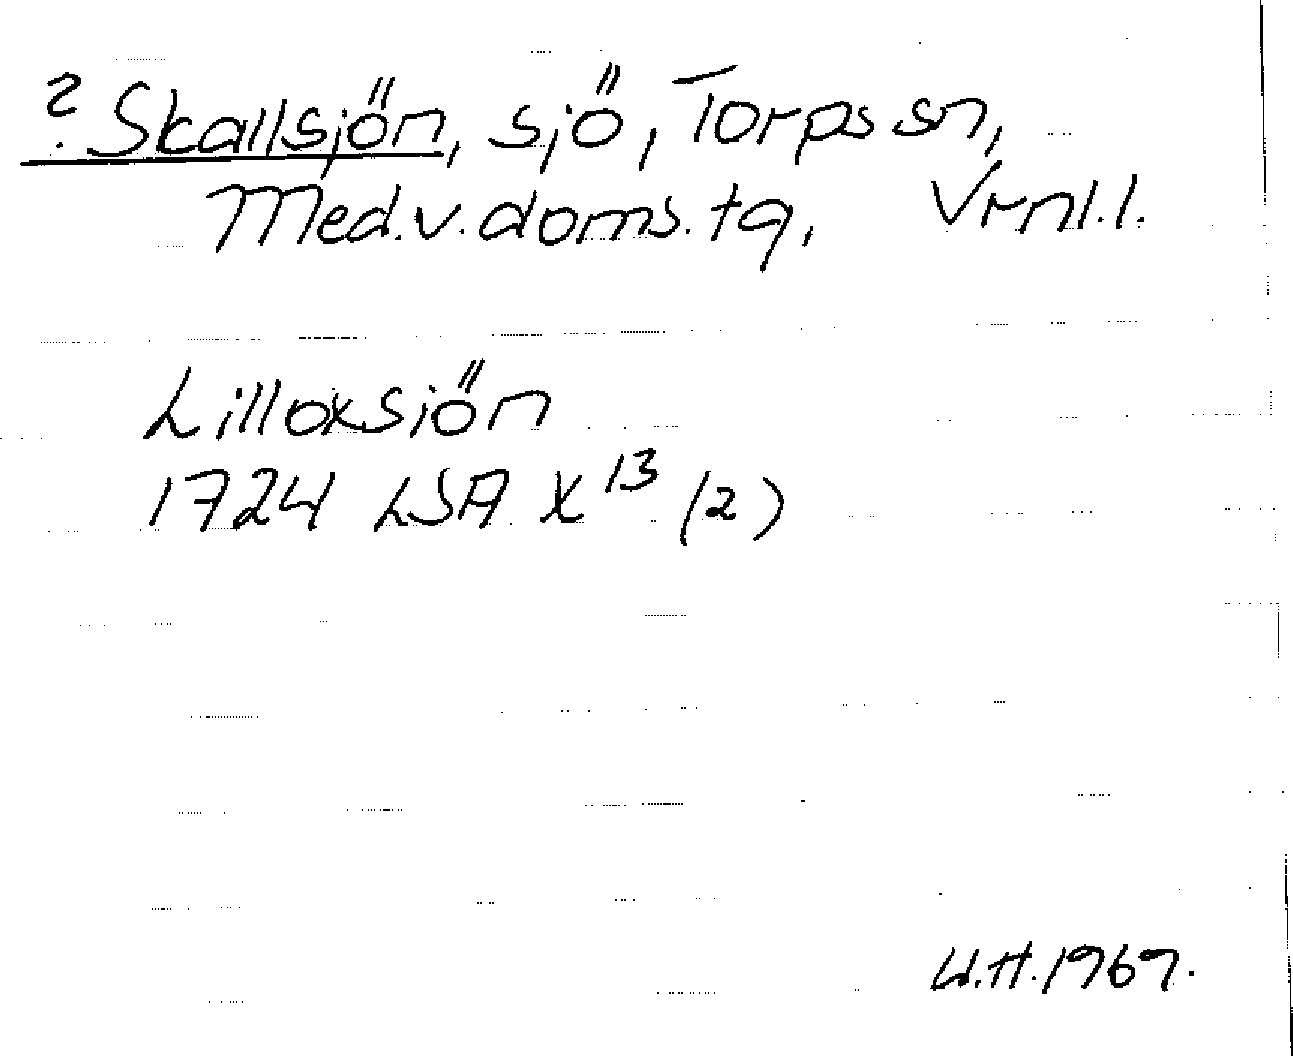 ? Skallsjön, sjö, Torps sn,
Med.v.doms.tg, Vrnl.l.
Lilloxsjön
1724 LSA X 13 (2)
U.H.1967.